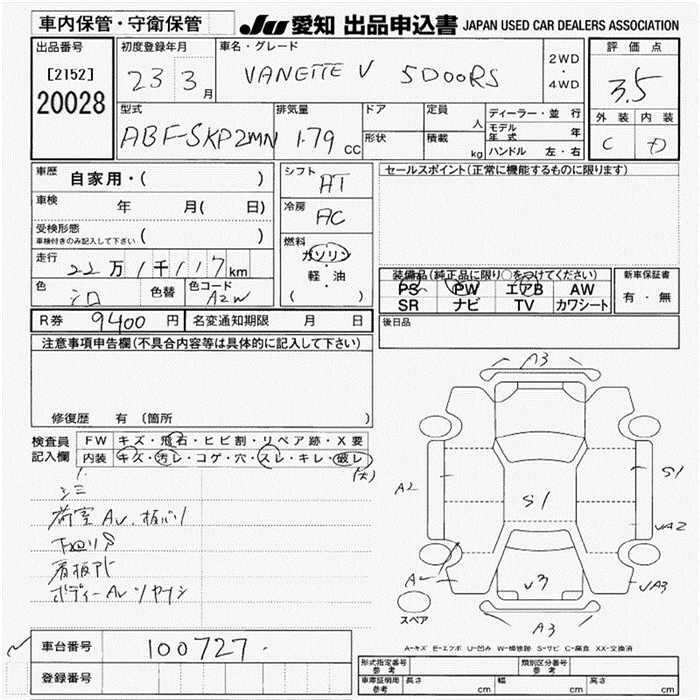 車内保管・守衛保管 JU 愛知 出品申込書 JAPAN USED CAR DEALERS ASSOCIATION
出品番号
[2152]
20028
初度登録年月
23 3月
車名・グレード
VANETTE V 5DOORS
2WD
・
4WD
評価点
3.5
外装 内装
C D
型式
ABF-SKP2MN
排気量
1.79 CC
ドア
形状
定員
人
積載
kg
ディーラー・並 行
モデル年式 年
ハンドル 左・右
車歴
自家用・( )
車検
年 月( 日)
受検形態
車検付きのみ記入して下さい ( )
走行
22万1千117km
色
シロ
色替
色コード
A2W
シフト
AT
冷房
AC
燃料
ガソリン
・
軽・油
( )
セールスポイント(正常に機能するものに限ります)
装備品(純正品に限り○をつけてください)
PS PW エアB AW
SR ナビ TV カワシート
新車保証書
有・無
後日品
R券 9400 円
名変通知期限 月 日
注意事項申告欄(不具合内容等は具体的に記入して下さい)
修復歴 有 (箇所 )
検査員
記入欄
FW キズ・飛石・ヒビ割・リペア跡・X要
内装 キズ・汚レ・コゲ・穴・スレ・キレ・破レ
(大)
荷室AU.板バリ
下廻りS
看板アト
ボディーAU
A3
A2
S1
S1
UA2
UA3
U3
A3
スペア
A-キズ E-エクボ U-凹み W-補修跡 S-サビ C-腐食 XX-交換済
車台番号
100727
登録番号
形式指定番号
参考
類別区分番号
参考
車庫証明用
参考
長さ cm
幅 cm
高さ cm